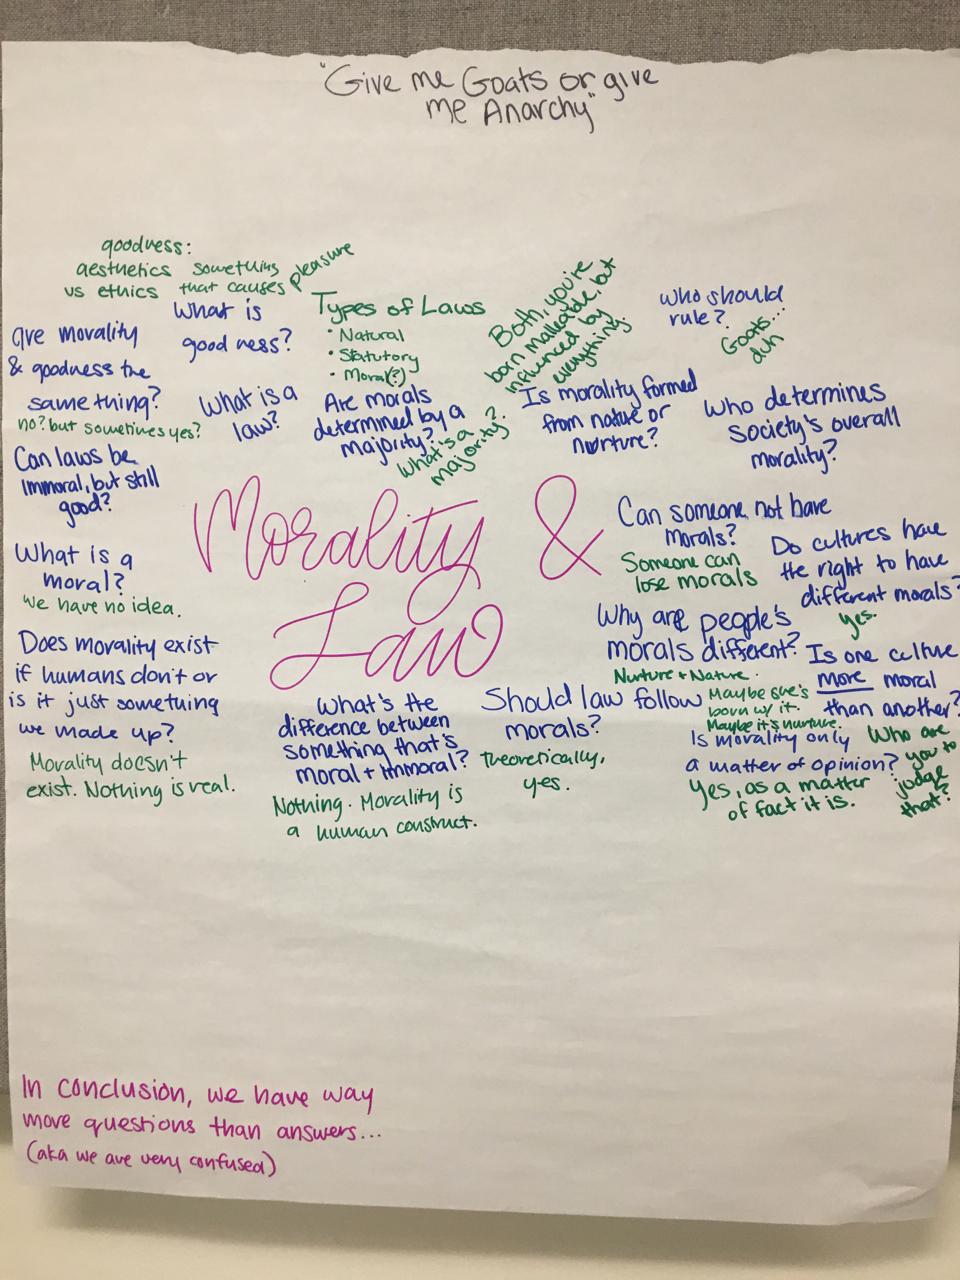 "Give me Goats or give
me Anarchy"
goodness:
aesthetics
vs ethics
something
that causes pleasure
What is
goodness?
are morality
& goodness the
same thing?
no? but sometimes yes?
Can laws be
immoral, but still
good?
What is a
law?
Types of Laws
• Natural
• Statutory
• Moral(?)
Are morals
determined by a
majority?
What's a
majority?
Both, you're
born malleable, but
influenced by
everything.
Is morality formed
from nature or
nurture?
Who should
rule?
Goats...
duh
Who determines
society's overall
morality?
Morality &
Law
Can someone not have
morals?
Someone can
lose morals
Do cultures have
the right to have
different morals?
yes.
What is a
moral?
We have no idea.
Why are people's
morals different?
Nurture + Nature.
Maybe she's
born w/ it.
Maybe it's nurture.
Is one culture
more moral
than another?
Who are
you to
judge
that?
Does morality exist
if humans don't or
is it just something
we made up?
Morality doesn't
exist. Nothing is real.
What's the
difference between
something that's
moral + immoral?
Nothing. Morality is
a human construct.
Should law follow
morals?
Theoretically,
yes.
Is morality only
a matter of opinion?
Yes, as a matter
of fact it is.
In conclusion, we have way
more questions than answers...
(aka we are very confused)